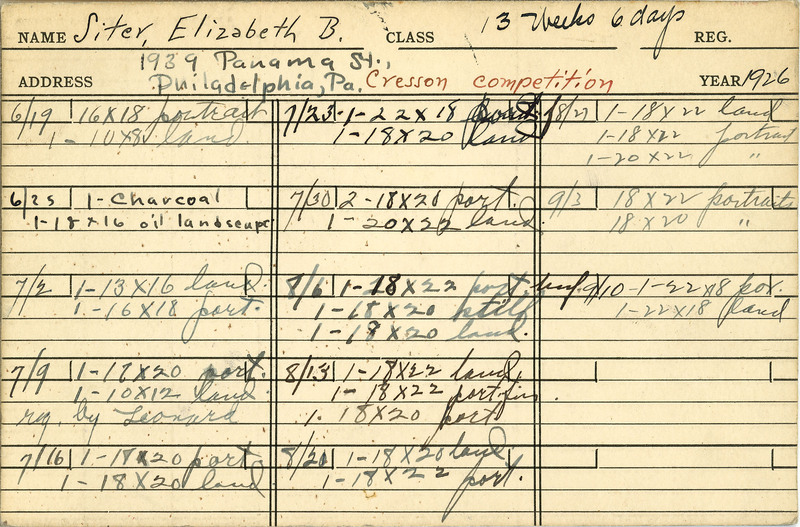 NAME Siter, Elizabeth B. CLASS 13 Weeks 6 days REG.
1939 Panama St.,
ADDRESS Philadelphia, Pa. Cresson competition YEAR 1926
6/19 16x18 portrait
1-10x8 land
6/25 1-Charcoal
1-18x16 oil landscape
7/2 1-13x16 land.
1-16x18 port.
7/9 1-18x20 port.
1-10x12 land
reg. by Leonard
7/16 1-18x20 port
1-18x20 land
7/23-1-22x18
1-18x20 land
7/30 2-18x20 port.
1-20x22 land.
8/6 1-18x22 port. unf.
1-18x20 still
1-18x20 land.
8/13 1-18x22 land,
1-18x22 port fin.
1. 18x20 port
8/20 1-18x20 land
1-18x22 port.
8/27 1-18x22 land
1-18x22 portrait
1-20x22 "
9/3 18x22 portraits
18x20 "
9/10-1-22x18 por.
1-22x18 land